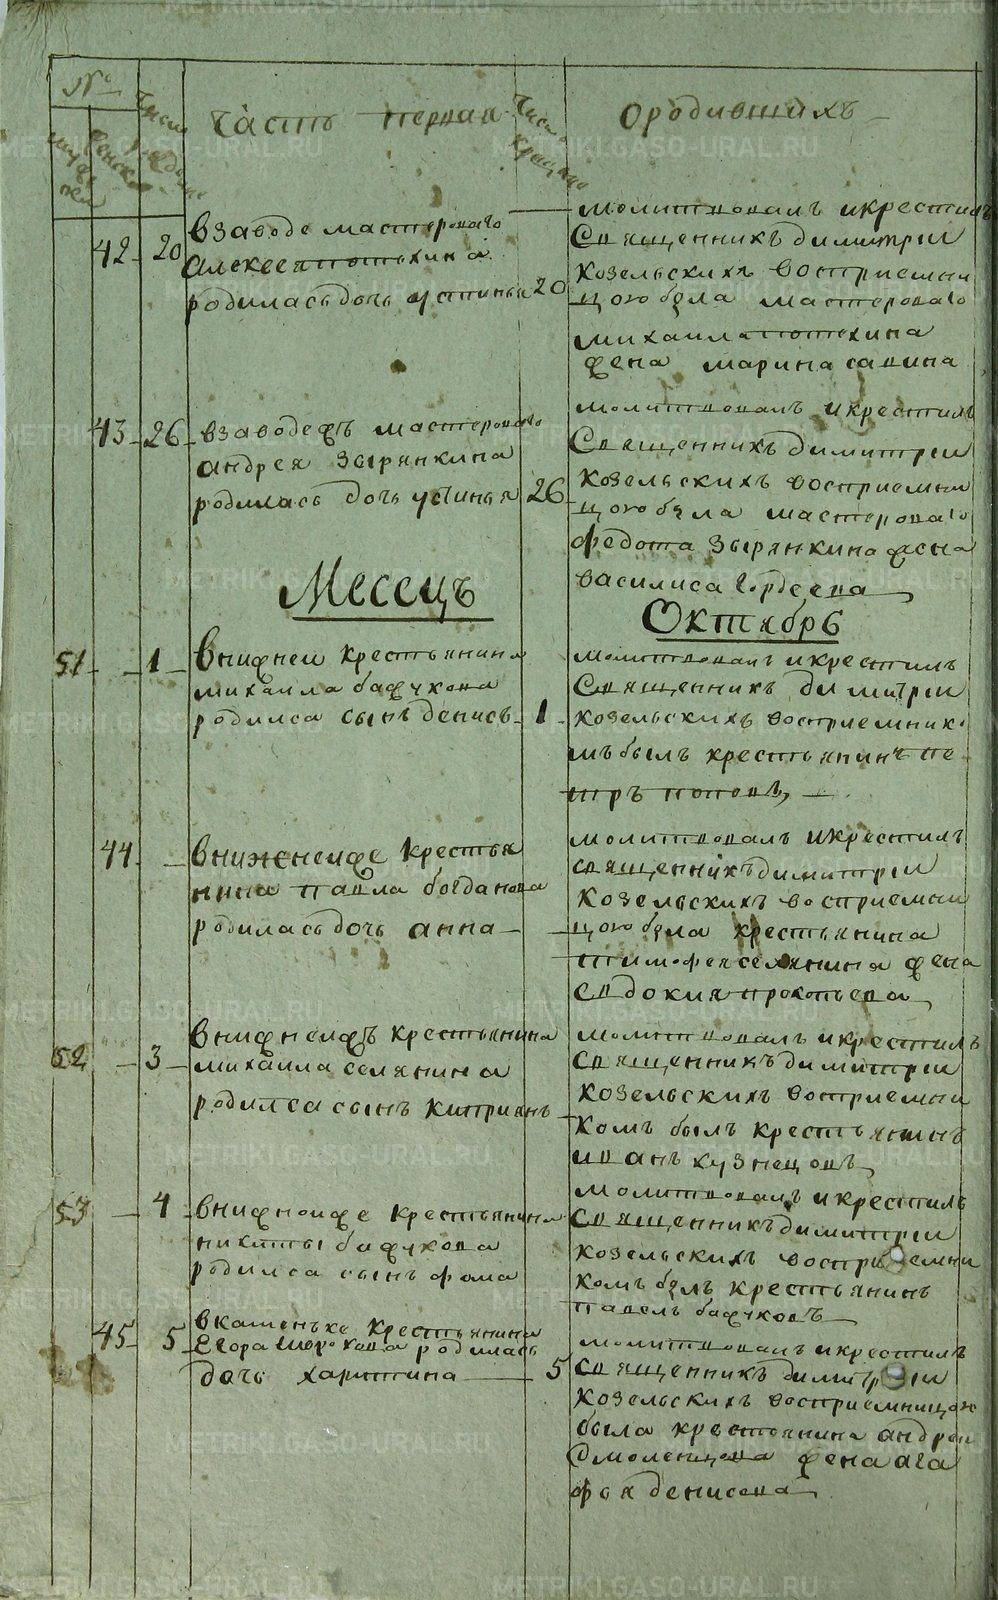 №
мужеска
женска
Число рождения
Часть первая
Число крещения
О родившихъ
42 20
в заводе мастероваго
алексея потехина
родилась дочь устинья 20
молитвовалъ и крестилъ
священникъ димитрии
козельскихъ восприемни
цою была мастероваго
михаила потехина
жена марина савина
43 26
в заводе жъ мастероваго
андрея зырянкина
родилась дочь устинья 26
молитвовалъ и крестилъ
священникъ димитрии
козельскихъ восприемни
цою была мастероваго
федота зырянкина жена
василиса гордеева
Месецъ
Октябрь
51 1
в нижнеи крестьянина
михаила бажукова
родился сынъ денисъ 1
молитвовалъ и крестилъ
священникъ димитрии
козельскихъ восприемнико
мъ былъ крестьянинъ пе
тръ поповъ
44
в нижнеиже крестья
нина павла богданова
родилась дочь анна
молитвовалъ и крестилъ
священникъ димитрии
козельскихъ восприемни
цою была крестьянина
тимофея селянина жена
евдокия прокопьева
52 3
в нижнеижъ крестьянина
михаила селянина
родился сынъ киприянъ
молитвовалъ и крестилъ
священникъ димитрии
козельскихъ восприемни
комъ былъ крестьянинъ
иванъ кузнецовъ
53 4
в нижнеиже крестьянина
никиты бажукова
родился сынъ фома
молитвовалъ и крестилъ
священникъ димитрии
козельскихъ восприемни
комъ былъ крестьянинъ
павелъ бажуковъ
45 5
в каменьке крестьянина
Егора родилась
дочь харитина 5
молитвовалъ и крестилъ
священникъ димитрии
козельскихъ восприемницою
была крестьянина андрея
смоленцова жена ага
фья денисова
METRIKI.GASO-URAL.RU